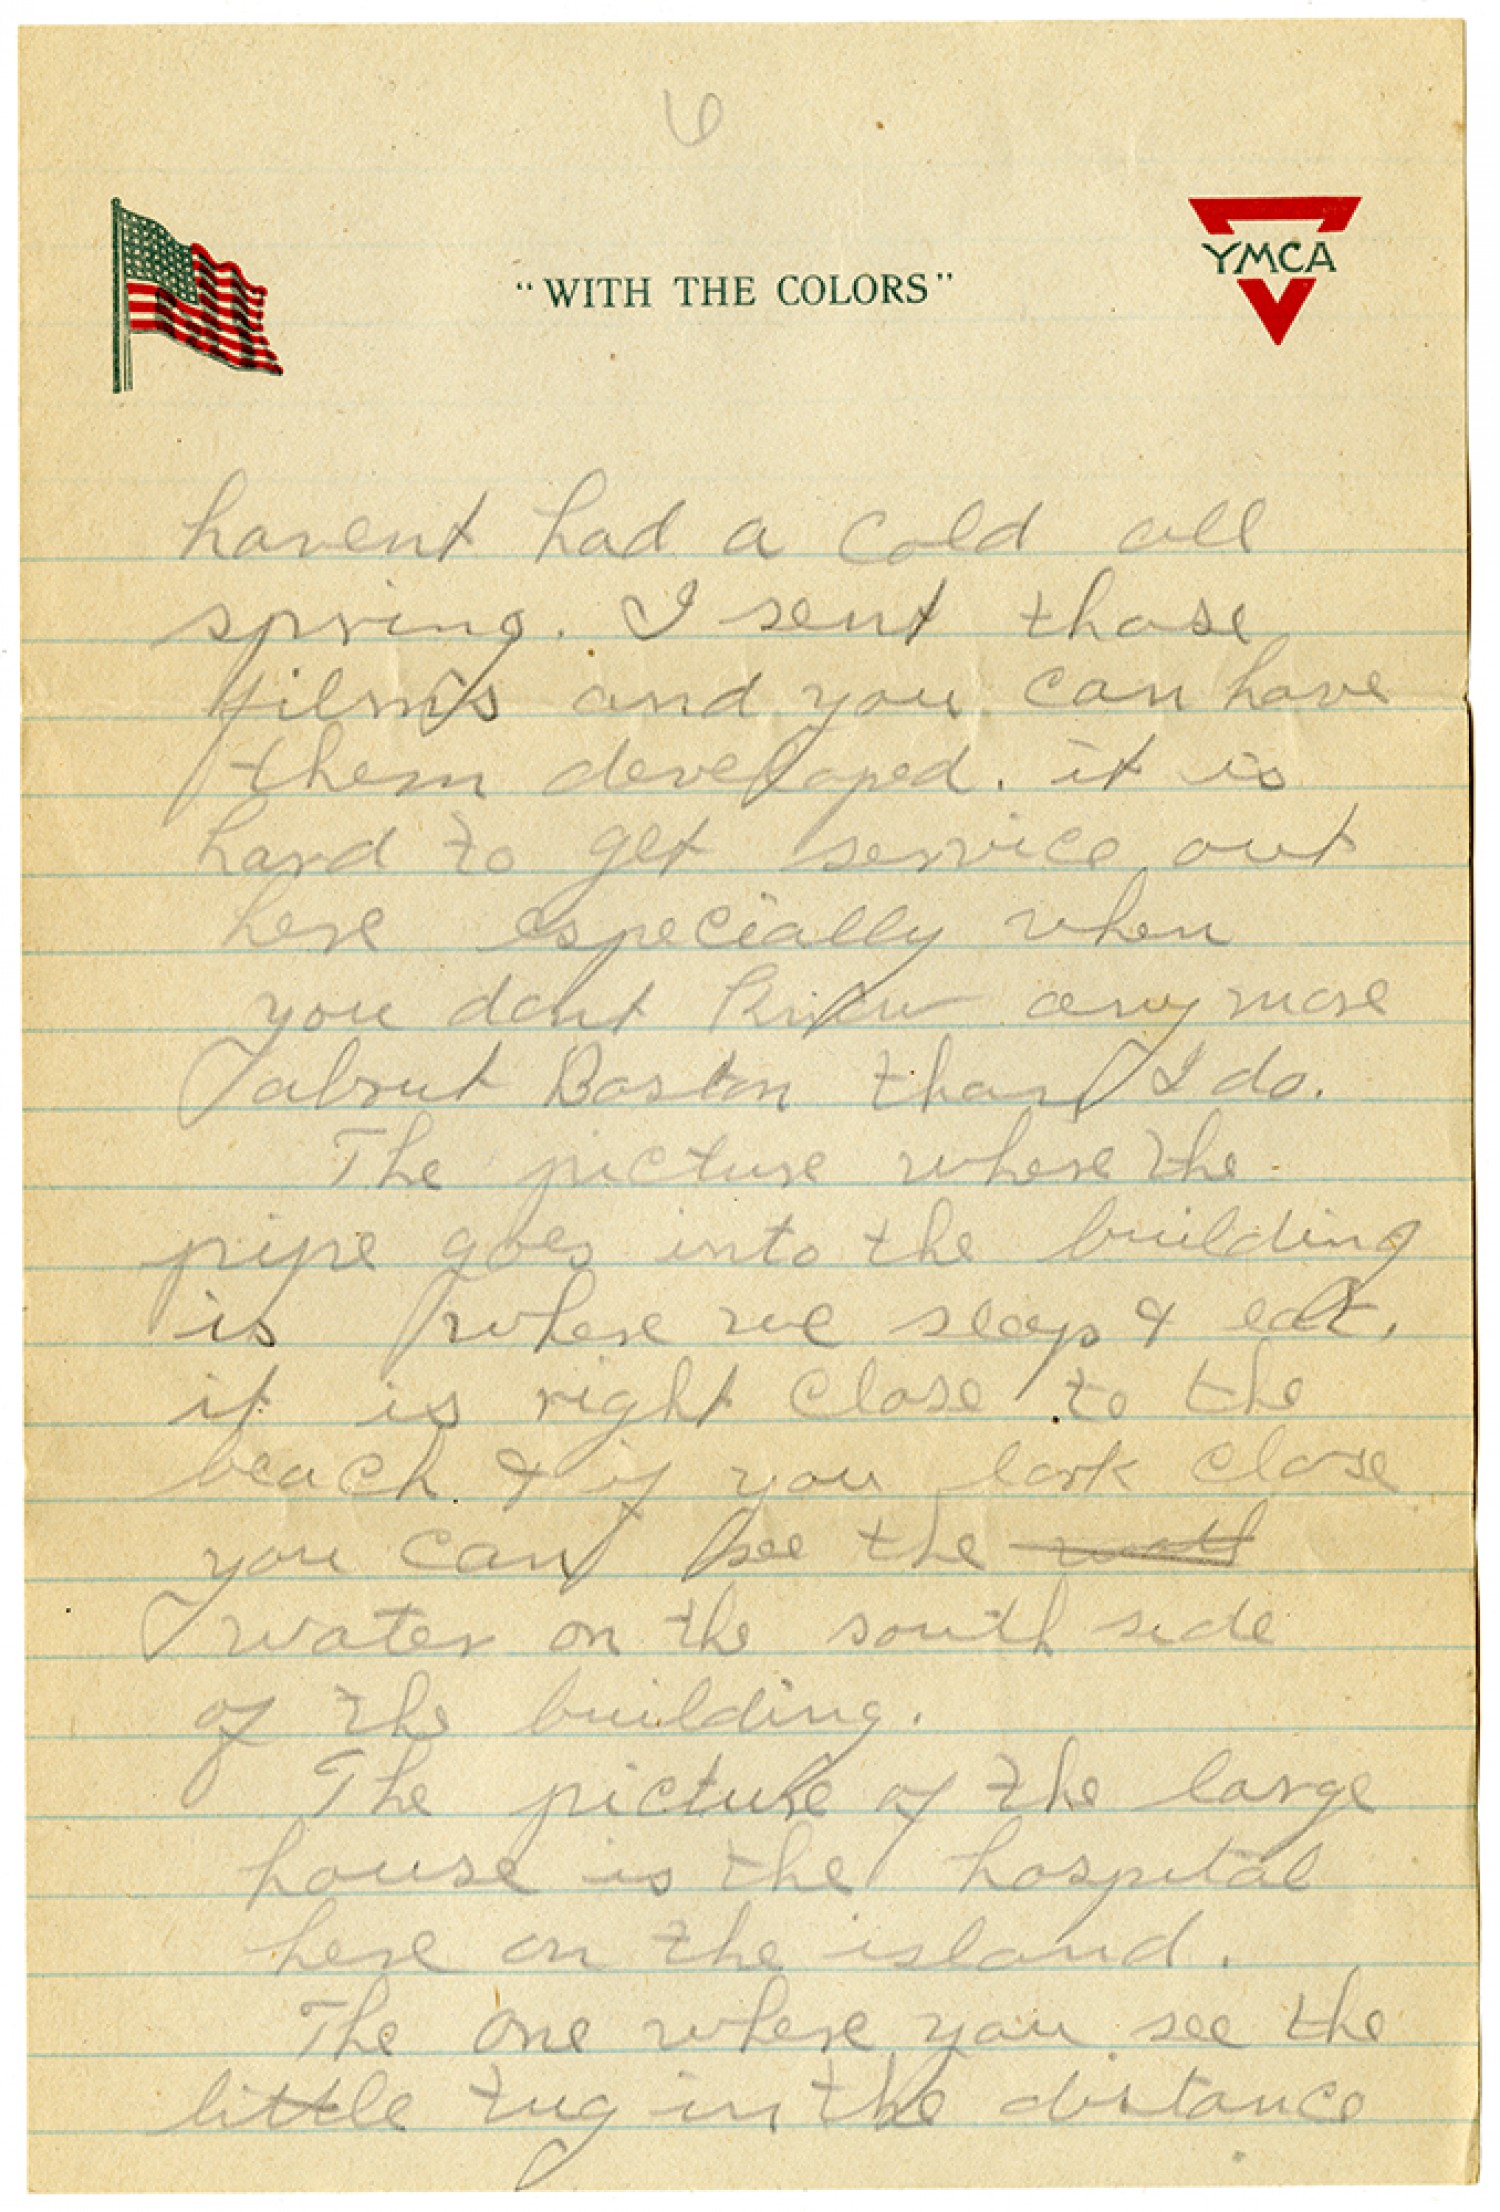 6
"WITH THE COLORS"
YMCA
havent had a cold all
spring. I sent those
films and you can have
them developed. it is
hard to get service out
here especially when
you dont know any more
about Boston than I do.
The picture where the
pipe goes into the building
is where we sleep & eat,
it is right close to the
beach & if you look close
you can see the
water on the south side
of the building.
The picture of the large
house is the hospital
here on the island.
The one where you see the
little tug in the distance